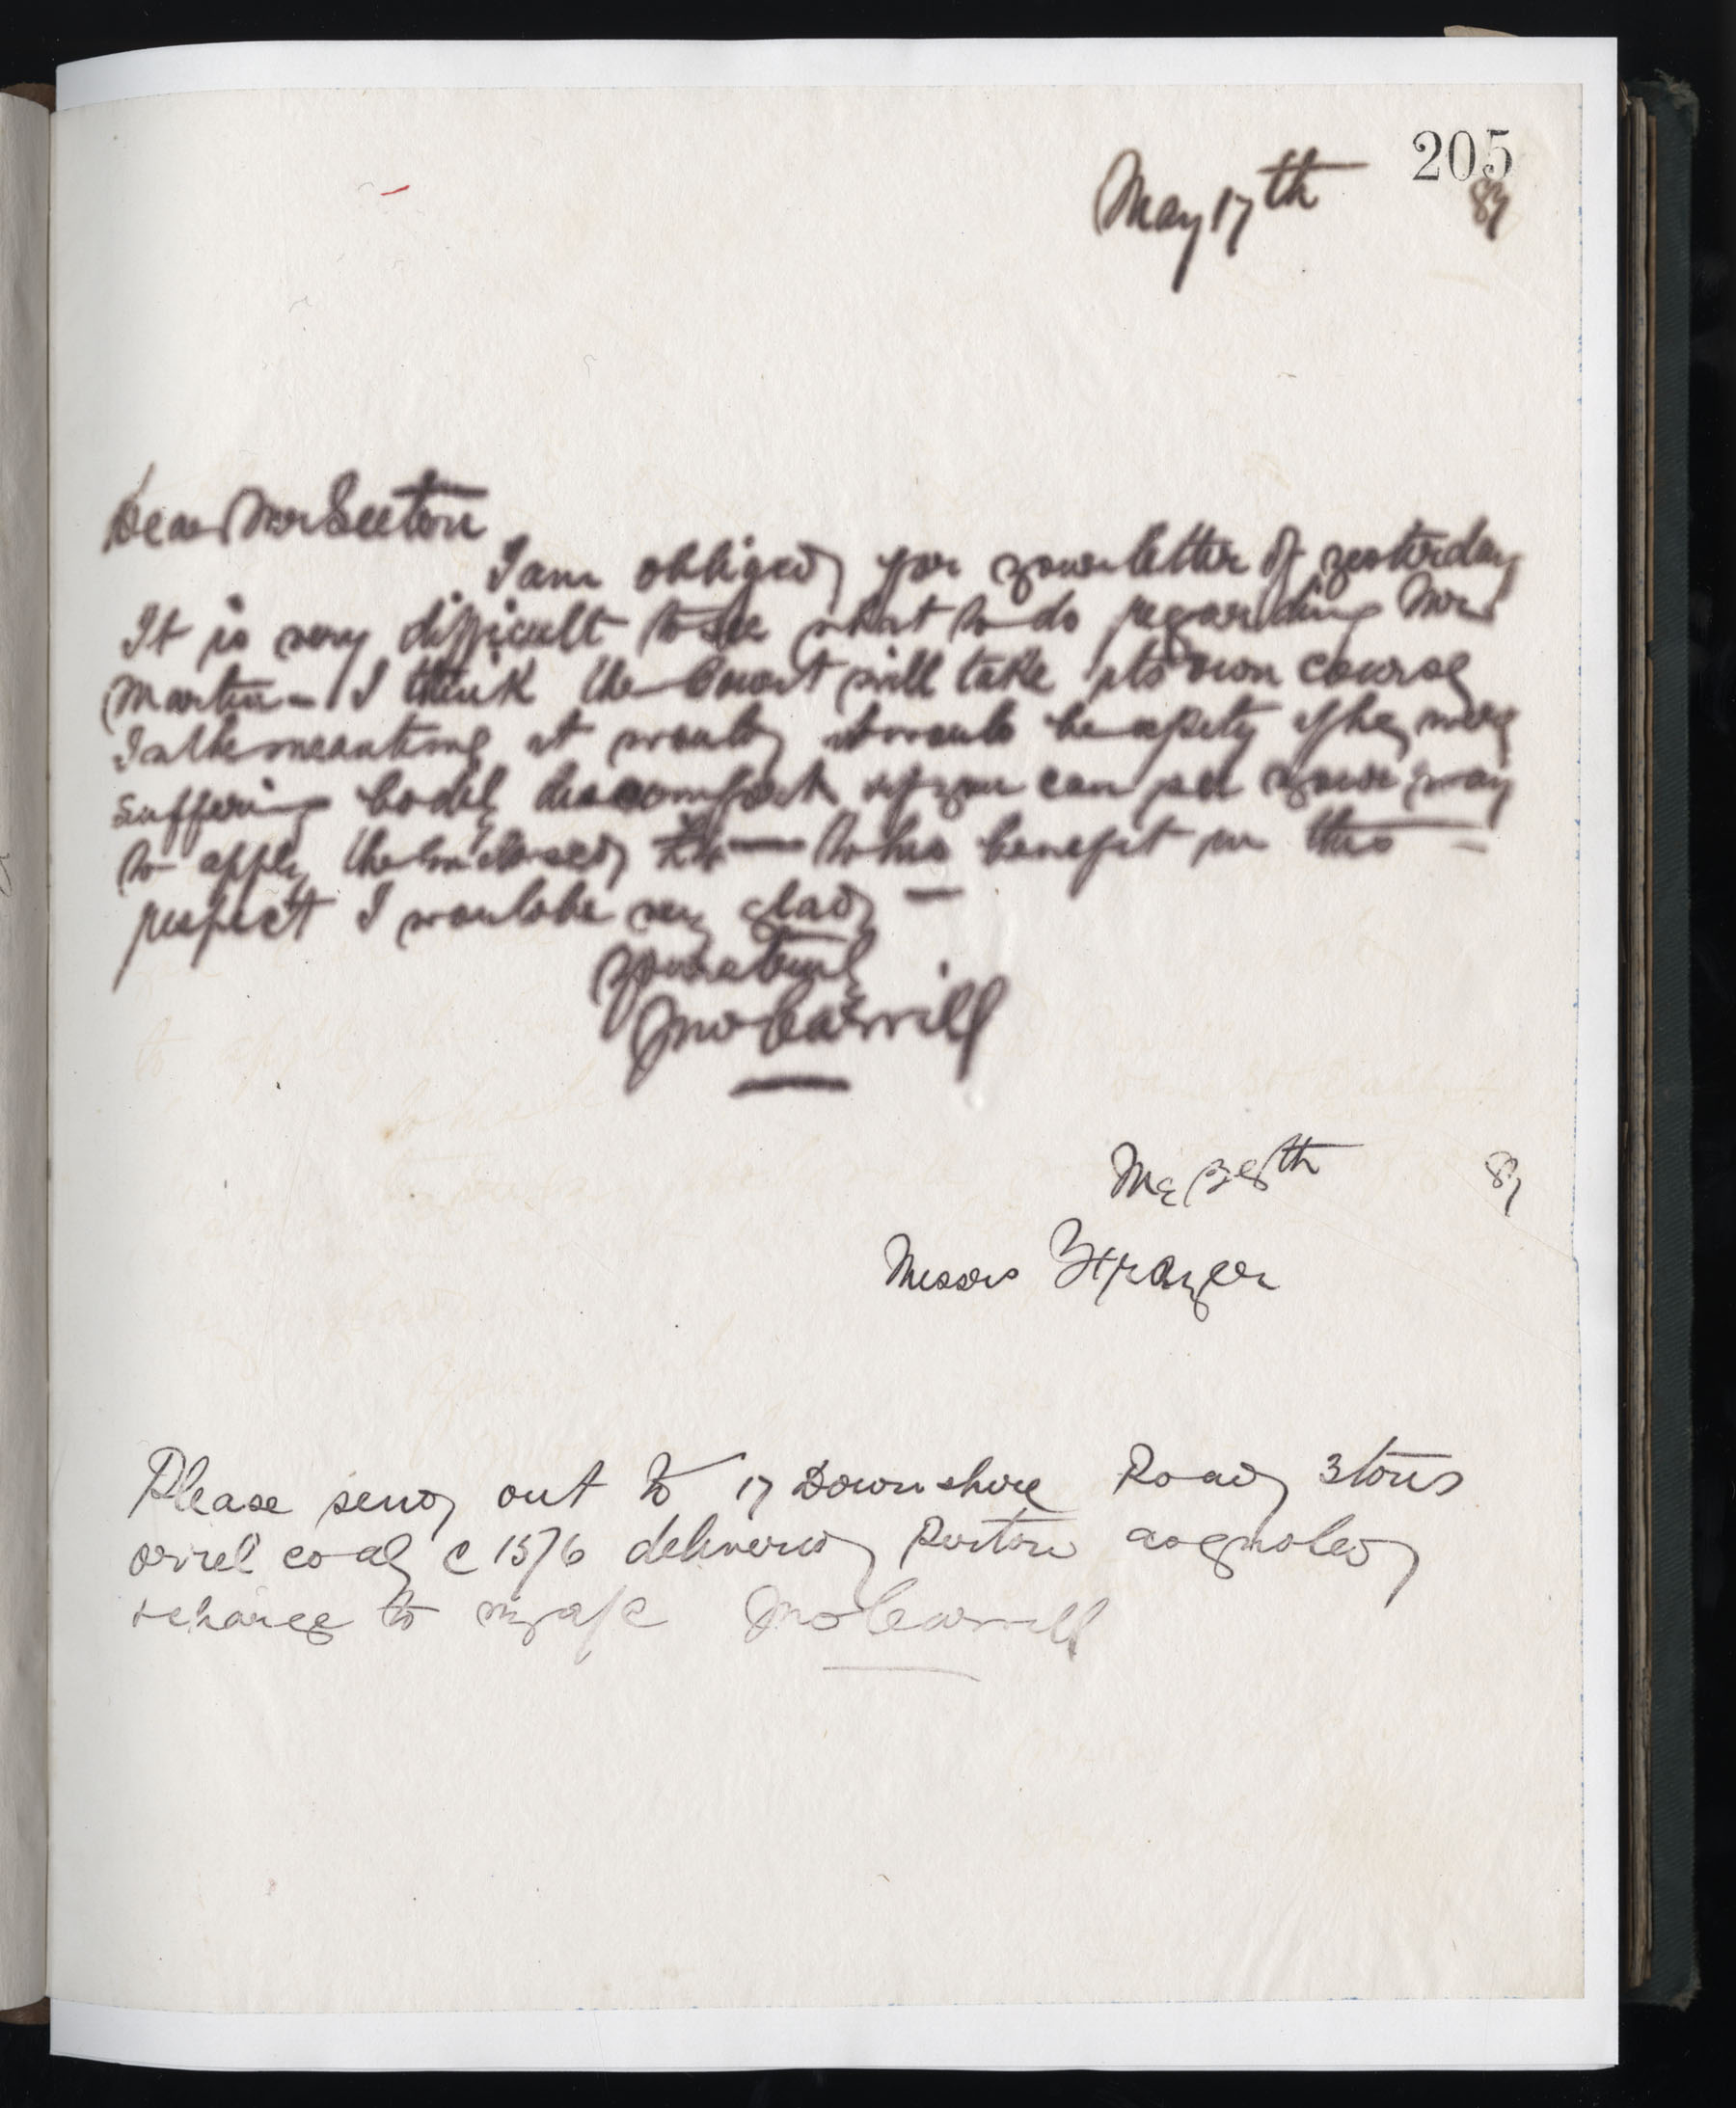 205
May 17th 87
Dear Mr Seeton
I am obliged for your letter of yesterday
It is very difficult to see what to do regarding Mr
Martin - I think the Court will take its own course
In the meantime it would it would be a pity if he were
suffering bodily discomfort & if you can see your way
to apply the enclosed to his benefit in this
respect I would be very glad
Yours truly
Jno Carvill
May 28th 87
Messrs
Please send out to 17 Downshire Road 3 tons
orrel coal @ 15/6 delivered Per ton
& charge to my a/c Jno Carvill